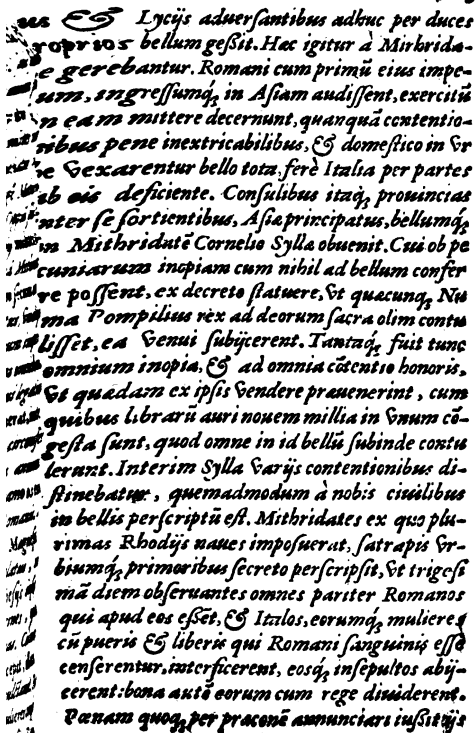 us & Lycijs aduersantibus adhuc per duces
proprios bellum gessit. Hæc igitur à Mithrida-
e gerebantur. Romani cum primū eius impe-
um, ingressumq́; in Asiam audissent, exercitū
n eam mittere decernunt, quanquā contentio-
nibus pene inextricabilibus, & domestico in vr
e vexarentur bello tota, ferè Italia per partes
ab eis deficiente. Consulibus itaq́; prouincias
nter se sortientibus, Asiæ principatus, bellumq́;
in Mithridatē Cornelio Syllæ obuenit. Cui ob pe
cuniarum inopiam cum nihil ad bellum confer
re possent, ex decreto statuere, vt quæcunq́; Nu
ma Pompilius rex ad deorum sacra olim contu
lisset, ea venui subijcerent. Tantaq́; fuit tunc
omnium inopia, & ad omnia cōtentio honoris,
vt quædam ex ipsis vendere præuenerint, cum
quibus librarū auri nouem millia in vnum cō-
gesta sunt, quod omne in id bellū subinde contu
lerunt. Interim Sylla varijs contentionibus di-
stinebatur, quemadmodum à nobis ciuilibus
in bellis perscriptū est. Mithridates ex quo plu-
rimas Rhodijs naues imposuerat, satrapis vr-
biumq́; primoribus secreto perscripsit, vt trigesi
mā diem obseruantes omnes pariter Romanos
qui apud eos esset, & Italos, eorumq́; mulieres
cū pueris & liberis qui Romani sanguinis esse
censerentur, interficerent, eosq́; insepultos abij-
cerent: bona autē eorum cum rege diuiderent.
Pœnam quoq́; per præconē annunciari iussit ijs